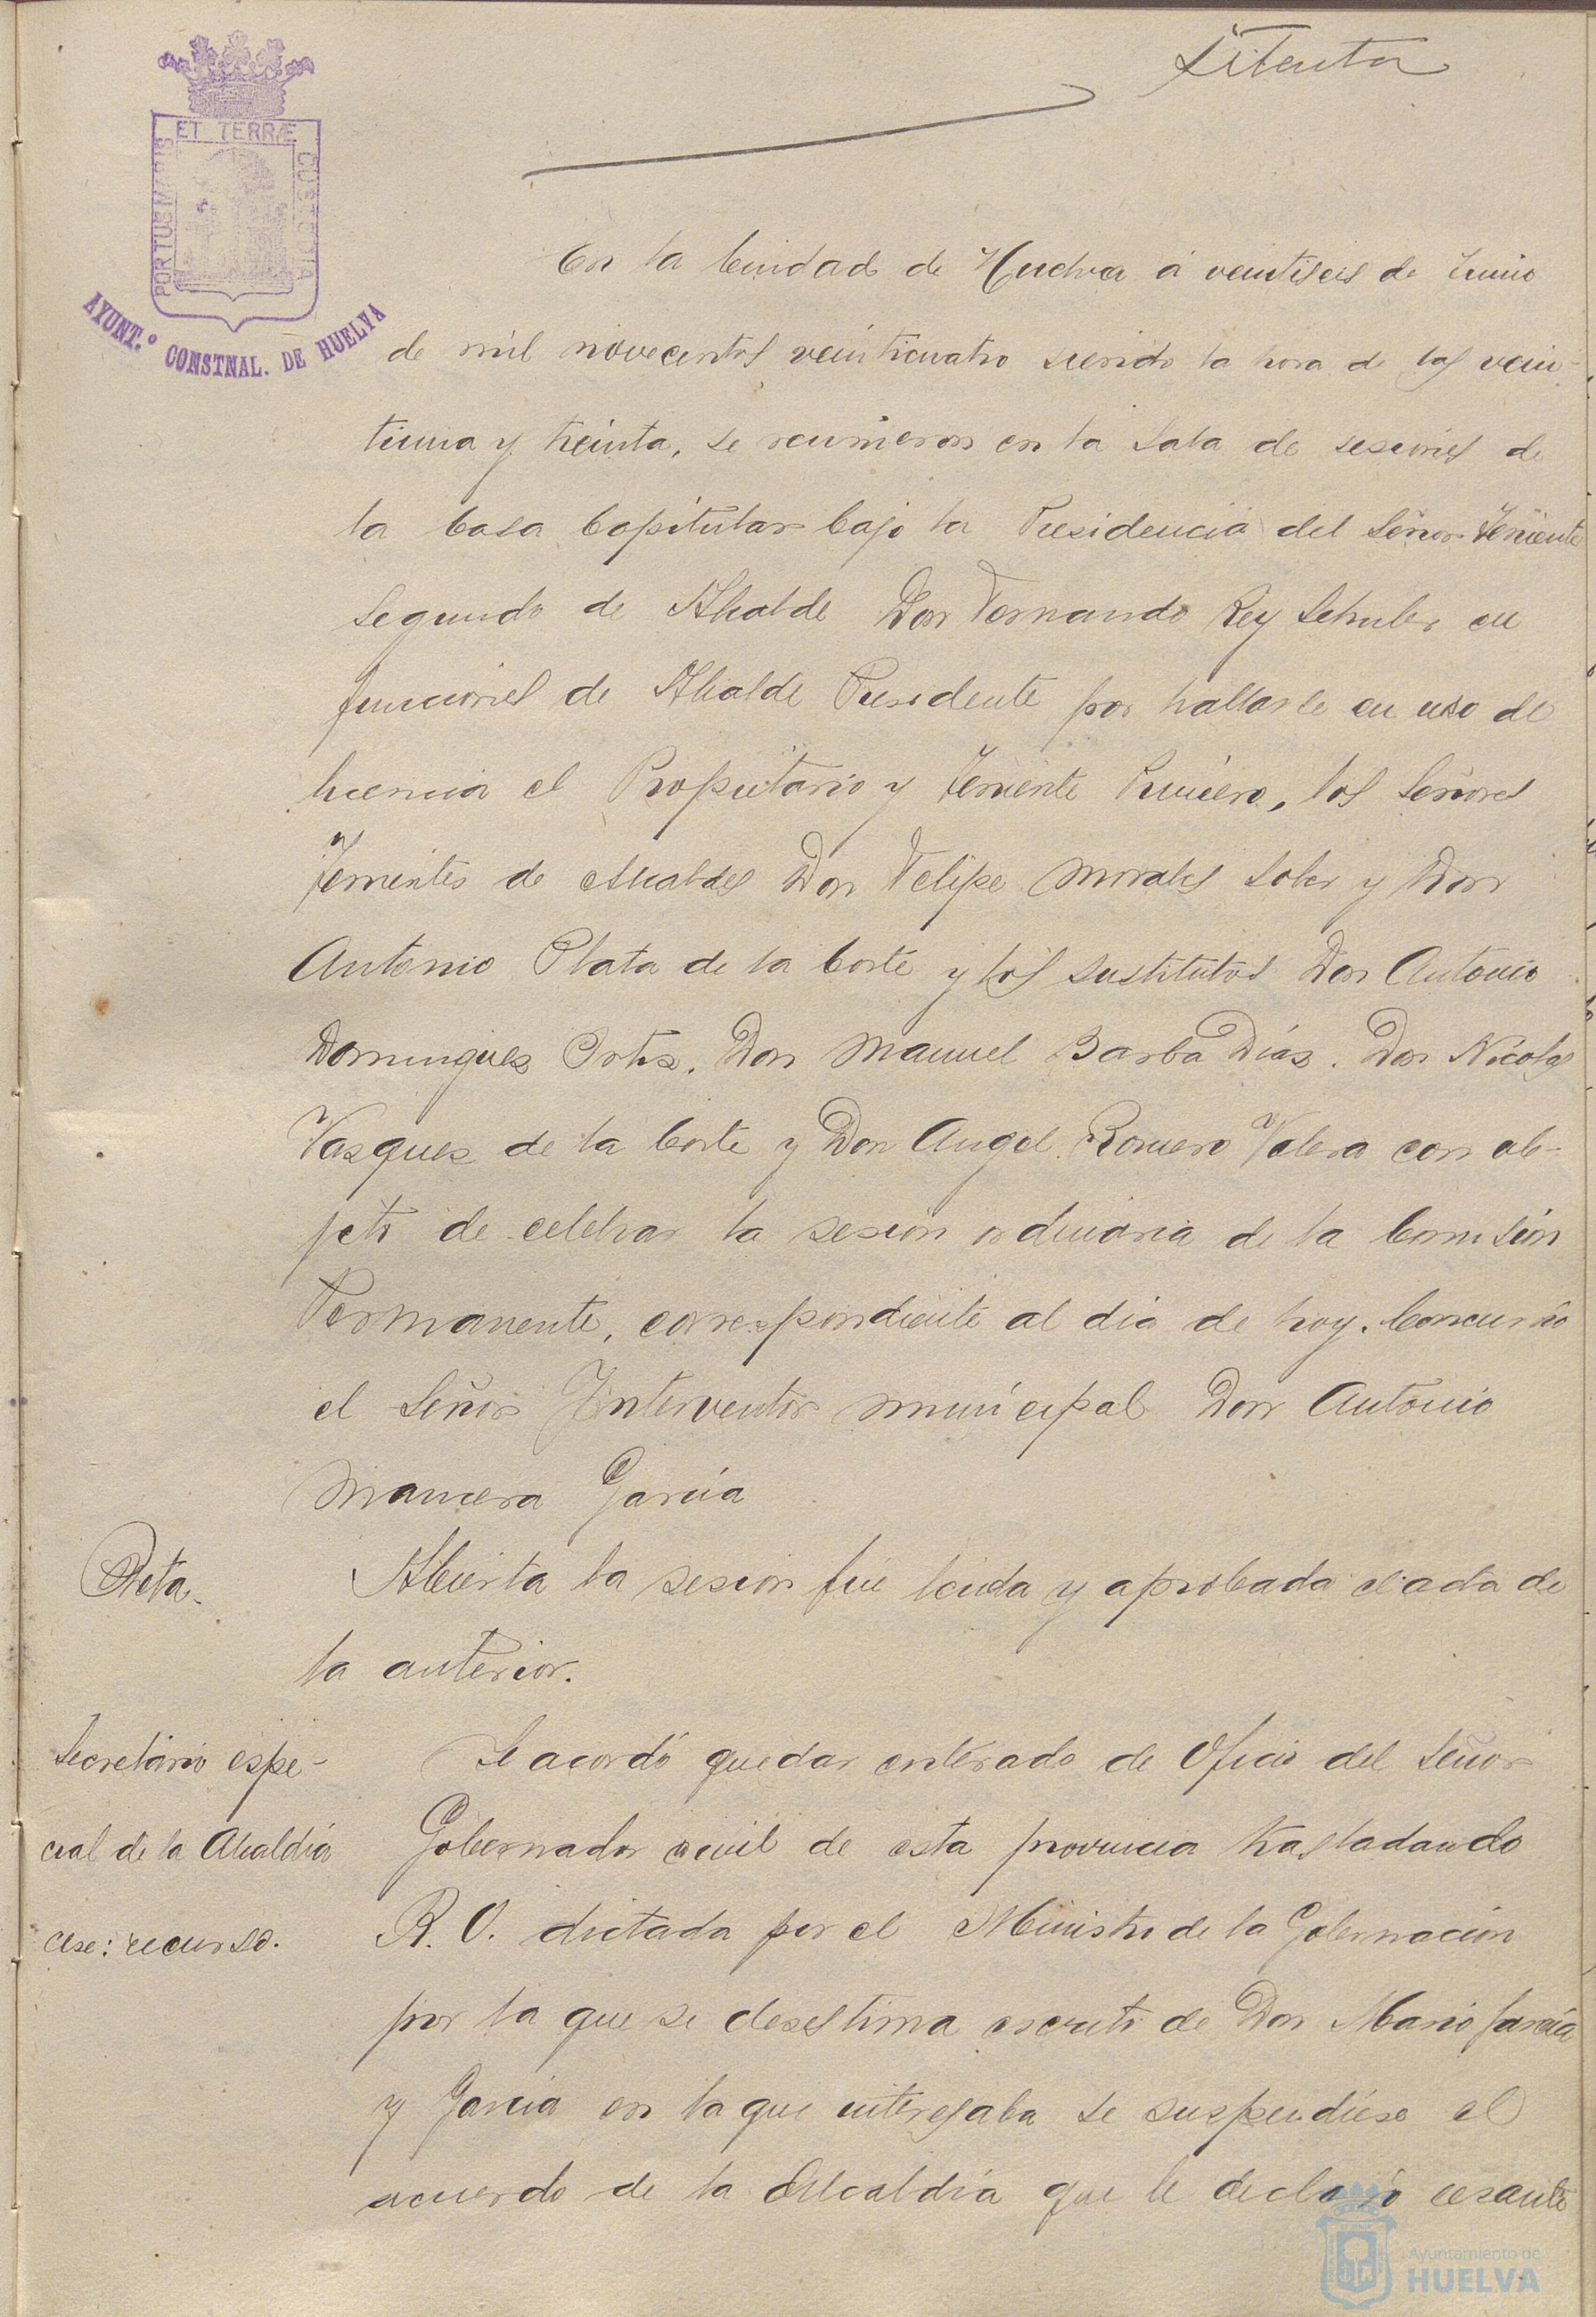 Setenta
ET TERRÆ
PORTUS MARIS
CUSTODIA
AYUNT.º CONSTNAL. DE HUELVA
En la Ciudad de Huelva á veintiseis de Junio
de mil novecientos veinticuatro siendo la hora de las vein-
tiuna y treinta, se reunieron en la Sala de sesiones de
la Casa Capitular bajo la Presidencia del Señor Teniente
Segundo de Alcalde Don Fernando Rey Schuler en
funciones de Alcalde Presidente por hallarse en uso de
licencia el Propietario y Teniente Primero, los Señores
Tenientes de Alcaldes Don Felipe Morales Soler y Don
Antonio Plata de la Corte y los sustitutos Don Antonio
Domingues Ortiz, Don Manuel Barba Días, Don Nicolas
Vasques de la Corte y Don Angel Romero Valera con ob-
jeto de celebrar la sesion ordinaria de la Comisión
Permanente, correspondiente al dia de hoy. Concurrió
el Señor Interventor municipal Don Antonio
Mancera García
Acta.
Abierta la sesion fue leida y aprobada el acta de
la anterior.
Secretario espe-
cial de la Alcaldía
cese: recurso.
Se acordó quedar enterado de Oficio del Señor
Gobernador civil de esta provincia trasladando
R. O. dictada por el Ministro de la Gobernación
por la que se desestima escrito de Don Mario García
y García en la que interesaba se suspendiese el
acuerdo de la Alcaldía que le declaró cesante
Ayuntamiento de
HUELVA